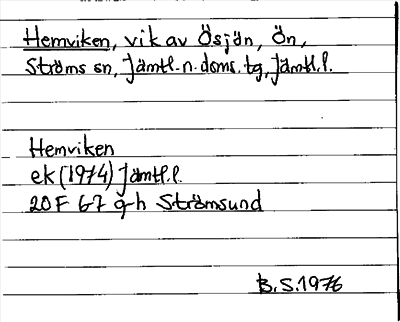 Hemviken, vik av Ösjön, Ön,
Ströms sn, Jämtl. n. doms. tg, Jämtl. l.
Hemviken
ek (1974) Jämtl. l.
20 F 67 g-h Strömsund
B. S. 1976